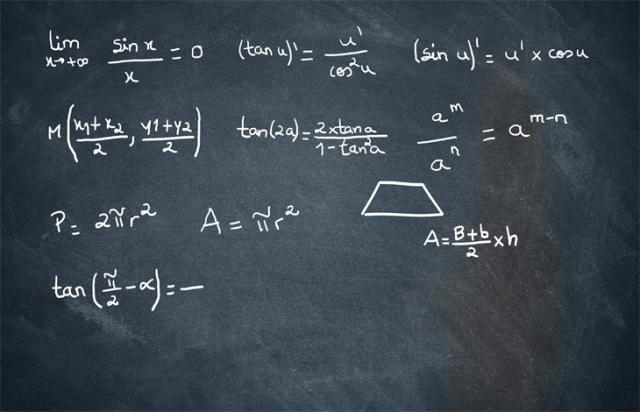 lim x→+∞ sin x / x = 0   (tan u)' = u' / cos²u   (sin u)' = u' x cos u
M((x1+x2)/2, (y1+y2)/2)   tan(2a) = 2xtan a / 1-tan²a   a^m / a^n = a^(m-n)
P = 2πr²   A = πr²
A = (B+b)/2 x h
tan(π/2 - α) = —